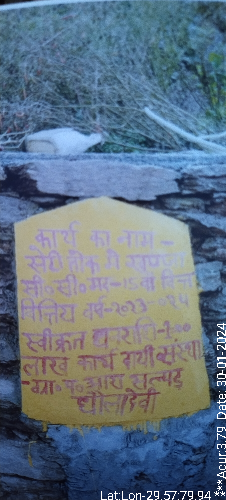 कार्य का नाम -
सेरी तोक में
सी०सी० मद-15वां वित्त
वित्तिय वर्ष-2023-024
स्वीकृत धनराशि-1.00
लाख कार्य दायी संस्था
-ग्रा.पं.
धौलादेवी
Lat Lon-29.57.79 94
***Acur 3.79 Date: 30-01-2024